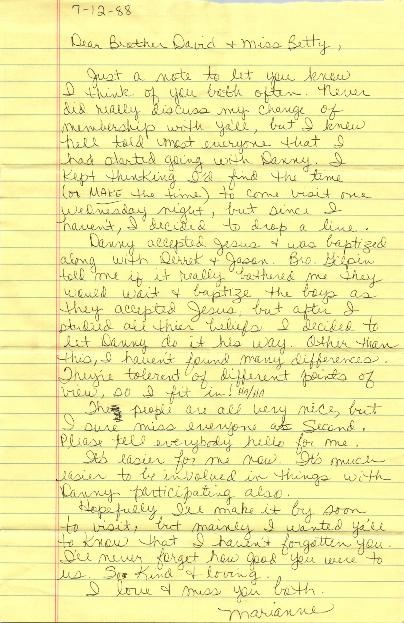 7-12-88
Dear Brother David & Miss Betty,
Just a note to let you know
I think of you both often. Never
did really discuss my change of
membership with ya'll, but I knew
told most everyone that I
had started going with Danny. I
kept thinking I'd find the time
(or MAKE the time) to come visit one
wednesday night, but since I
havent, I decided to drop a line.
Danny accepted Jesus & was baptized
along with Derret & Jason. Bro. Gilpin
tell me if it really bothered me they
would wait & baptize the boys as
they accepted Jesus, but after I
studied all thier beliefs I decided to
let Danny do it his way. Other than
this, I havent found many differences.
They're tolerent of different points of
view, so I fit in! HA/HA
The people are all very nice, but
I sure miss everyone at Second.
Please tell everybody hello for me.
It's easier for me now. It's much
easier to be involved in things with
Danny participating also.
Hopefully I'll make it by soon
to visit, but mainly I wanted ya'll
to know that I haven't forgotten you.
I'll never forget how good you were to
us. So kind & loving.
I love & miss you both.
Marianne